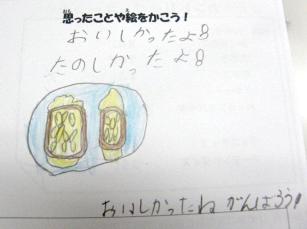 思ったことや絵をかこう！
おいしかったよ8
たのしかったよ8
おいしかったね がんばろう!